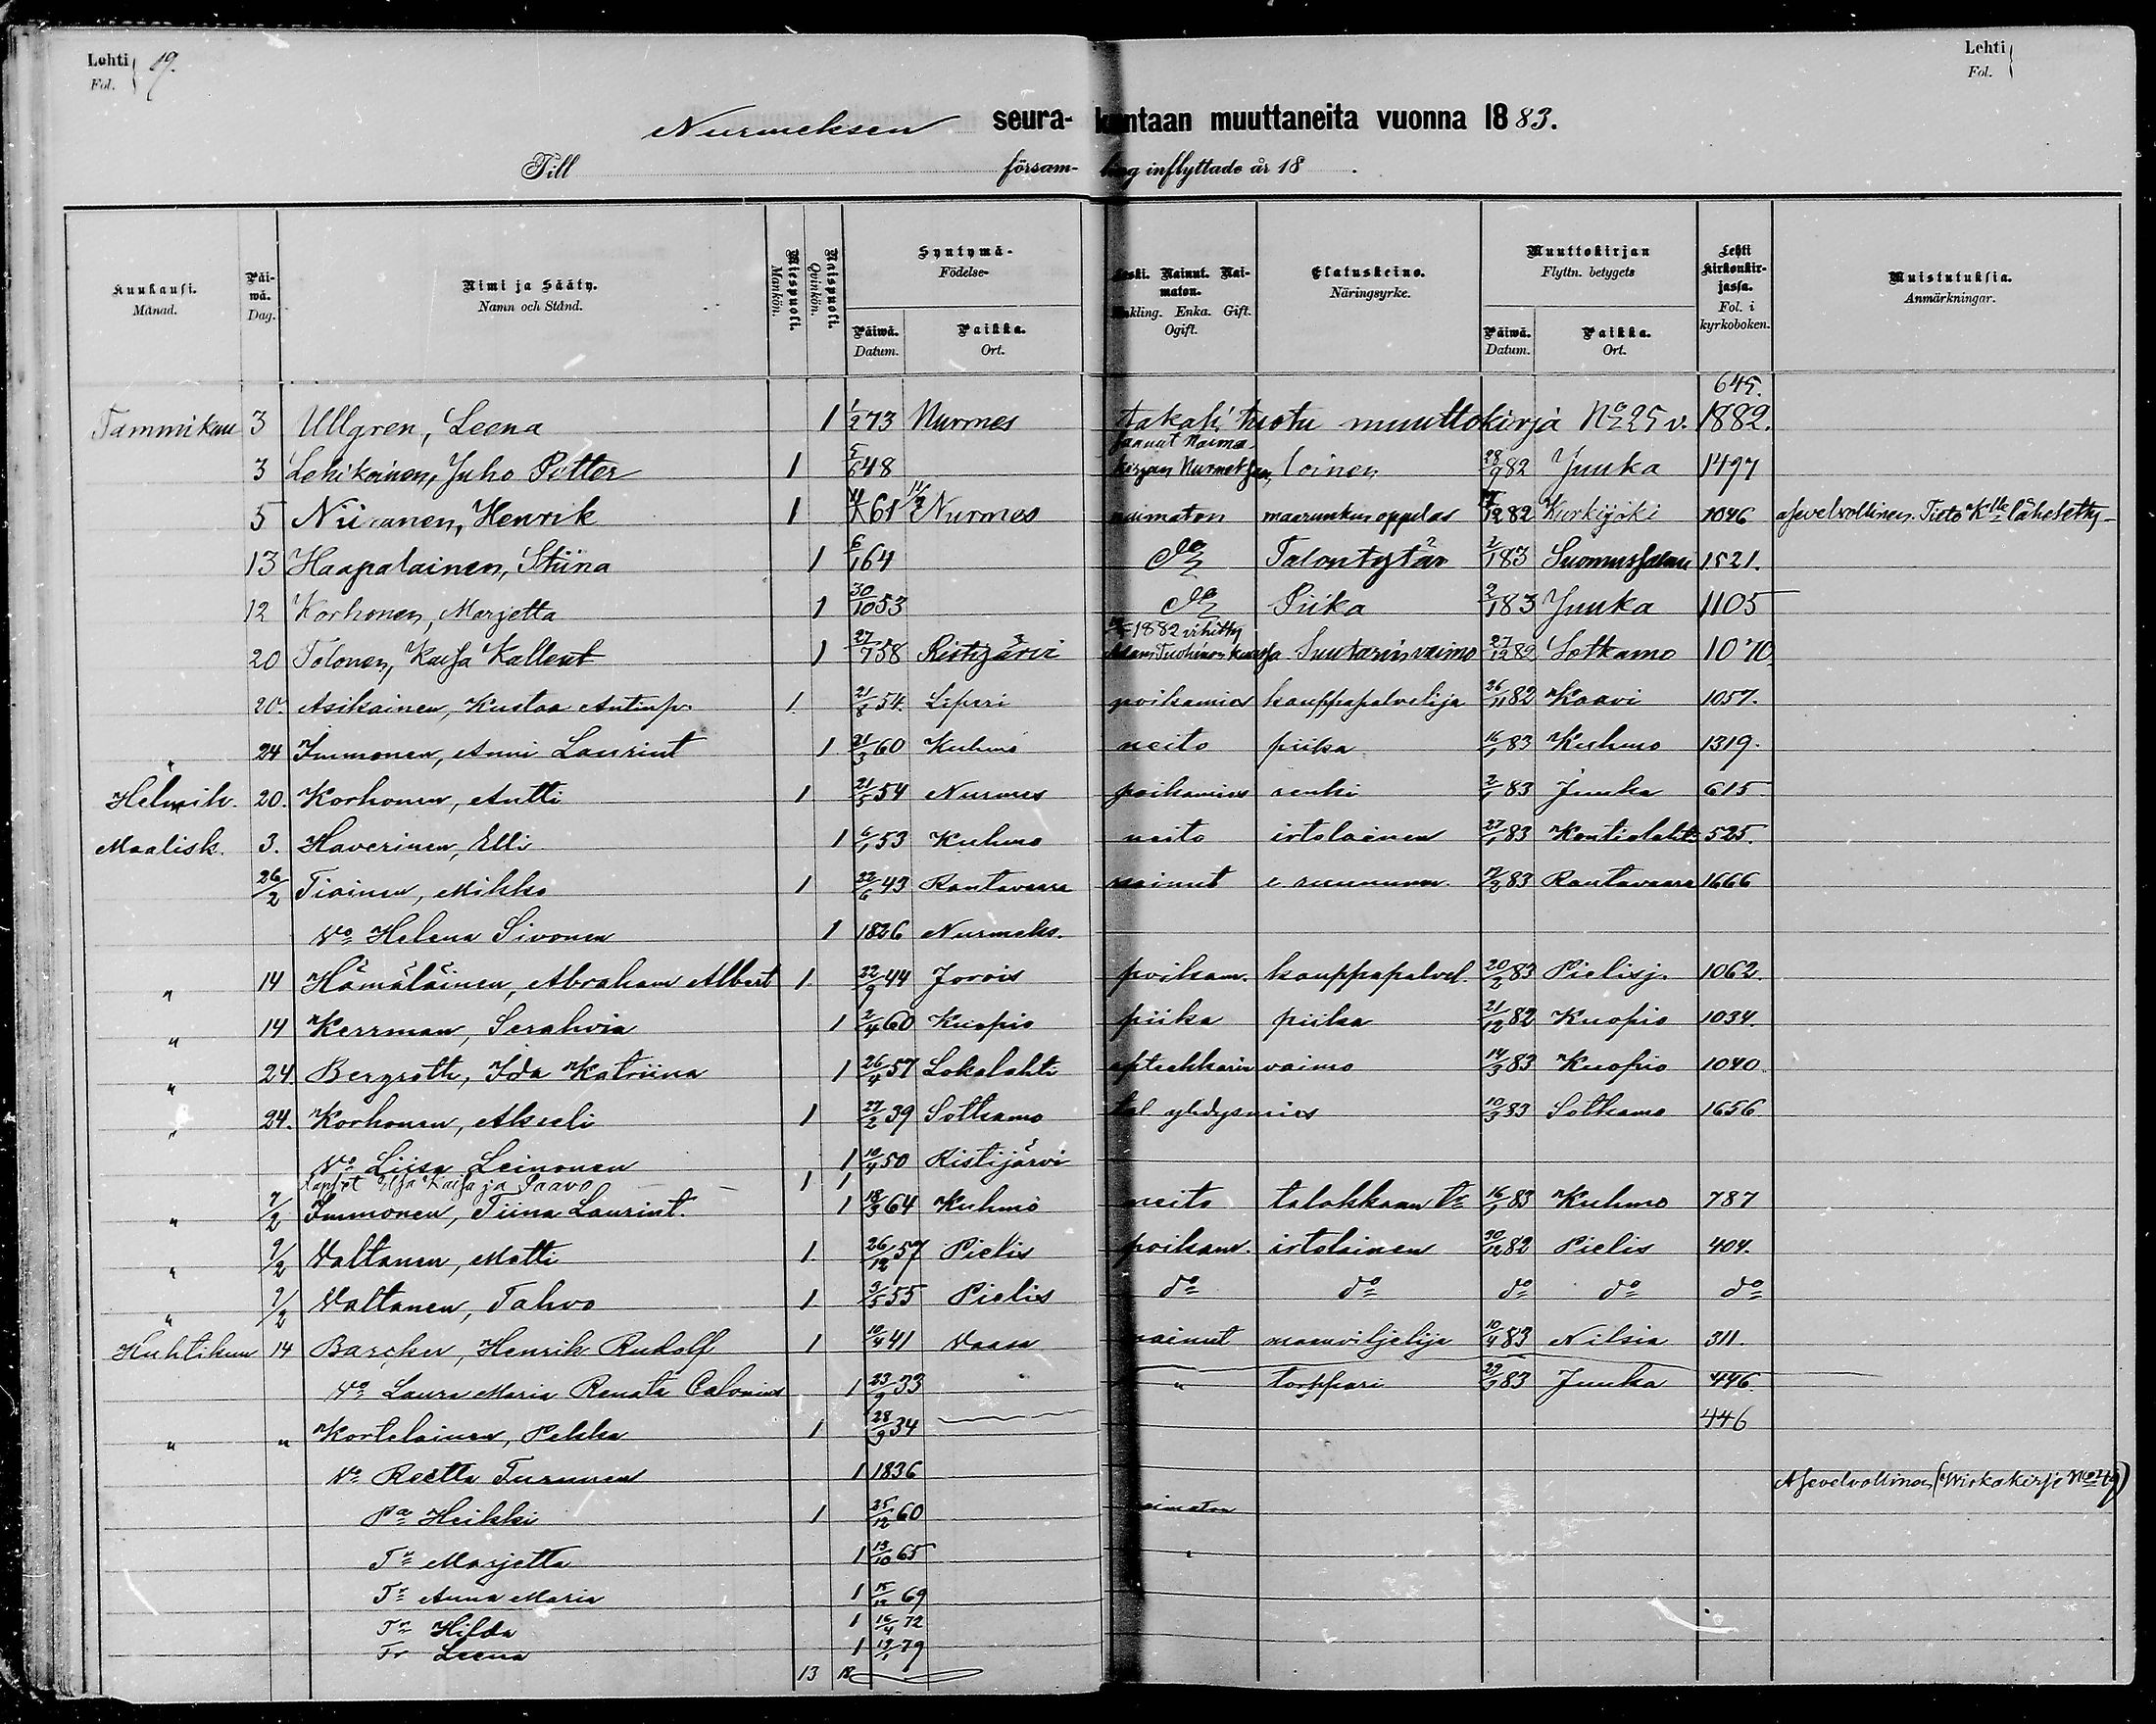 Lehti
Fol. 19.
Lehti
Fol.
Nurmeksen seura- kuntaan muuttaneita vuonna 1883.
Till församling inflyttade år 18 .
Kuukausi. Månad.
Päiwä. Dag.
Nimi ja Sääty. Namn och Stånd.
Miespuoli. Mankön.
Naispuoli. Qvinkön.
Syntymä- Födelse-
Päiwä. Datum.
Paikka. Ort.
Leski. Nainut. Naimaton. Enkling. Enka. Gift. Ogift.
Elatuskeino. Näringsyrke.
Muuttokirjan Flyttn. betygets
Päiwä. Datum.
Paikka. Ort.
Lehti kirkonkirjassa. Fol. i kyrkoboken.
Muistutuksia. Anmärkningar.
645.
Tammikuu 3 Ullgren, Leena 1 1/2 73 Nurmes takasi tuotu muuttokirja No 25 v. 1882.
3 Lehikoinen, Juho Petter 1 5/6 48 saanut naima kirjan Nurmeksen, loinen 28/9 82 Juuka 1497
5 Niiranen, Henrik 1 61 11/2 Nurmes naimaton maarunkus oppilas 82 Kurkijoki 1046 asevelvollinen. Tieto lähetetty
13 Haapalainen, Stiina 1 6/1 64 do Talontytär 2/1 83 Suomussalmi 1521.
12 Korhonen, Marjetta 1 30/10 53 do Piika 2/1 83 Juuka 1105
20 Tolonen, Kaisa Kallent 1 27/7 58 Ristijärvi 1882 vihitty Adam Tuohinon kanssa Suutarin vaimo 27/12 82 Sotkamo 1070
20. Asikainen, Kustaa Antinp. 1. 21/8 54. Liperi poikamies kauppapalvelija 26/11 82 Kaavi 1057.
" 24 Immonen, Anni Laurint 1 21/3 60 Kuhmo neito piika 16/1 83 Kuhmo 1319.
Helmik. 20. Korhonen, Antti 1 21/5 54 Nurmes poikamies renki 2/1 83 Juuka 615.
Maalisk. 3. Haverinen, Elli 1 6/1 53 Kuhmo neito irtolainen 27/1 83 Kontiolahti 525.
26/2 Tiainen, Mikko 1 22/6 43 Rautavaara nainut 7/2 83 Rautavaara 1666
Vo Helena Sivonen 1 1826 Nurmeks.
" 14 Hämäläinen, Abraham Albert 1. 22/9 44 Jorois poikam. kauppapalvel. 20/2 83 Pielisj. 1062
" 14 Kerrman, Serahvia 1 2/4 60 Kuopio piika piika 21/12 82 Kuopio 1034.
" 24. Bergroth, Ida Katriina 1 26/4 57 Lokalahti aptekkarin vaimo 14/3 83 Kuopio 1040
" 24. Korhonen, Akseli 1 27/2 39 Sotkamo tal. yhdysmies 10/3 83 Sotkamo 1656
Vo Liisa Leinonen 1 10/4 50 Ristijärvi
Lapset Kaisa ja Paavo 1 1
" 7/2 Immonen, Tiina Laurint. 1 18/3 64 Kuhmo neito talokkaan tr 16/1 83 Kuhmo 787
" 9/2 Valtanen, Matti 1. 26/12 57 Pielis poikam. irtolainen 30/12 82 Pielis 404.
" 9/2 Valtanen, Tahvo 1. 3/5 55 Pielis do do do do do
Huhtikuu 14 Barcker, Henrik Rudolf 1 10/4 41 Vaasa nainut maanviljelijä 10/4 83 Nilsiä 311.
Vo Laura Maria Renata Calonius 1 23/9 33 " torppari 29/3 83 Juuka 446
" " Kortelainen, Pekka 1 28/9 34 446
Vo Reetta Turunen 1 1836
Pa Heikki 1 25/12 60 naimaton Asevelvollinen (Wirkakirje
Tr Marjetta 1 13/10 65 "
Tr Anna Maria 1 15/12 69
Tr Hilda 1 16/4 72
Tr Leena 1 19/1 79
13 18